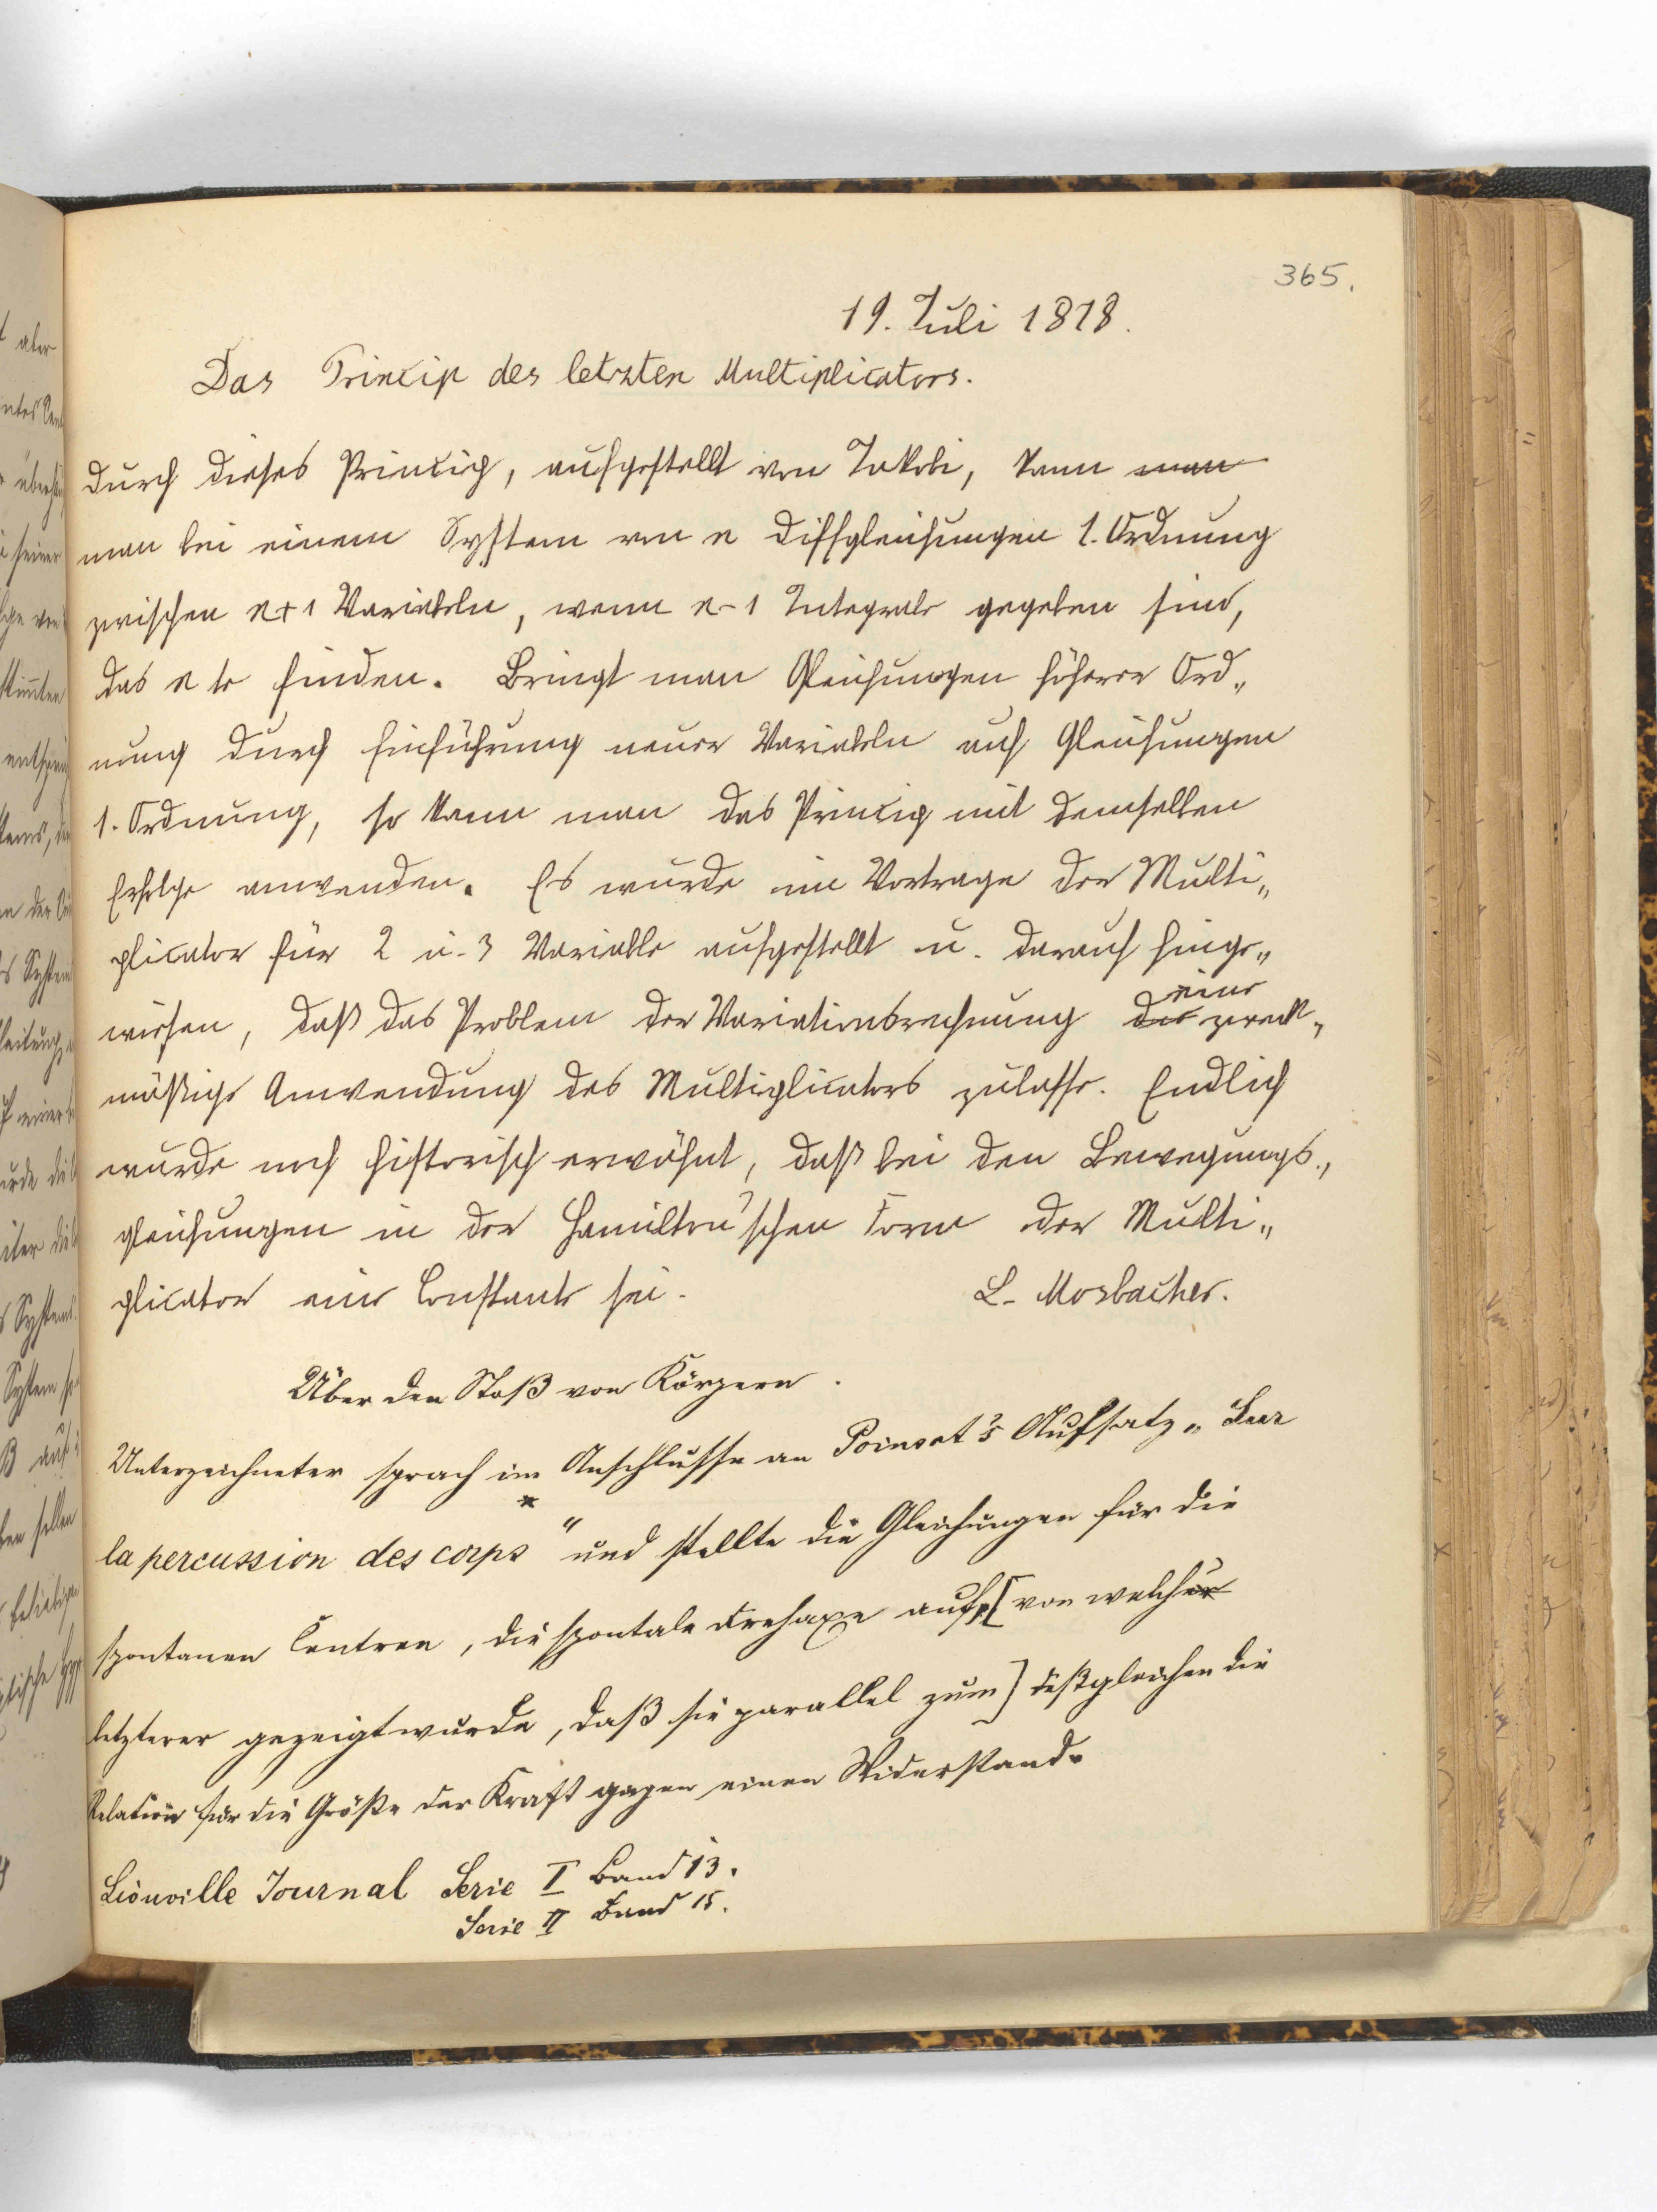 365.
19. Juli 1878.
Das Princip des letzten Multiplicators.
Durch dieses Princip, aufgestellt von Jakobi, kann man
man bei einem System von n Diffgleichungen 1. Ordnung
zwischen n+1 Variabeln, wenn n-1 Integrale gegeben sind,
das nte finden. Bringt man Gleichungen höherer Ord„
nung durch Einführung neuer Variabeln auf Gleichungen
1. Ordnung, so kann man das Princip mit demselben
Erfolge anwenden. Es wurde im Vortrage der Multi„
plicator für 2 u. 3 Variable aufgestellt u. darauf hinge„
wiesen, daß das Problem der Variationsrechnung die eine zweck„
mäßige Anwendung des Multiplicators zulasse. Endlich
wurde noch historisch erwähnt, daß bei den Bewegungs„
gleichungen in der Hamilton'schen Form der Multi„
plicator eine Constante sei.
L. Mosbacher.
Über den Stoß von Körpern.
Unterzeichneter sprach im Anschlusse an Poinsot's Aufsatz „Sur
la percussion des corps*“ und stellte die Gleichungen für die
spontanen Centren, die spontale Drehaxe auf, [von welcher
letzterer gezeigt wurde, daß sie parallel zum] deßgleichen die
Relation für die Größe der Kraft gegen einen Widerstand.
Liouville Journal Serie I Band 13.
Serie II Band 15.